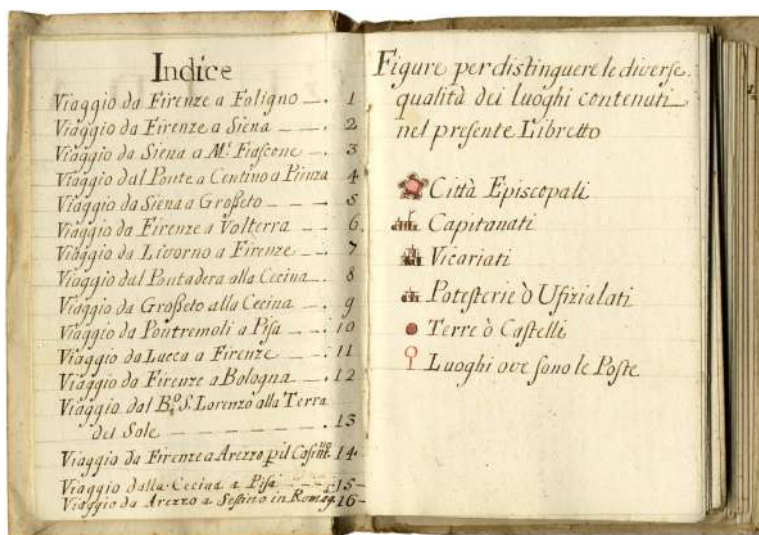 Indice
Viaggio da Firenze a Foligno 1
Viaggio da Firenze a Siena 2
Viaggio da Siena a M.e Fiascone 3
Viaggio dal Ponte a Centino a Pienza 4
Viaggio da Siena a Großeto 5
Viaggio da Firenze a Volterra 6
Viaggio da Livorno a Firenze 7
Viaggio dal Pontadera alla Cecina 8
Viaggio da Großeto alla Cecina 9
Viaggio da Pontremoli a Pisa 10
Viaggio da Lucca a Firenze 11
Viaggio da Firenze a Bologna 12
Viaggio dal B.o S. Lorenzo alla Terra
del Sole 13
Viaggio da Firenze a Arezzo p il 14
Viaggio dalla Cecina a Pisa 15
Viaggio da Arezzo a Sestino in Romag. 16
Figure per distinguere le diverse
qualità dei luoghi contenuti
nel presente Libretto
Città Episcopali
Capitanati
Vicariati
Potesterie ò Ufizialati
Terre ò Castelli
Luoghi ove sono le Poste